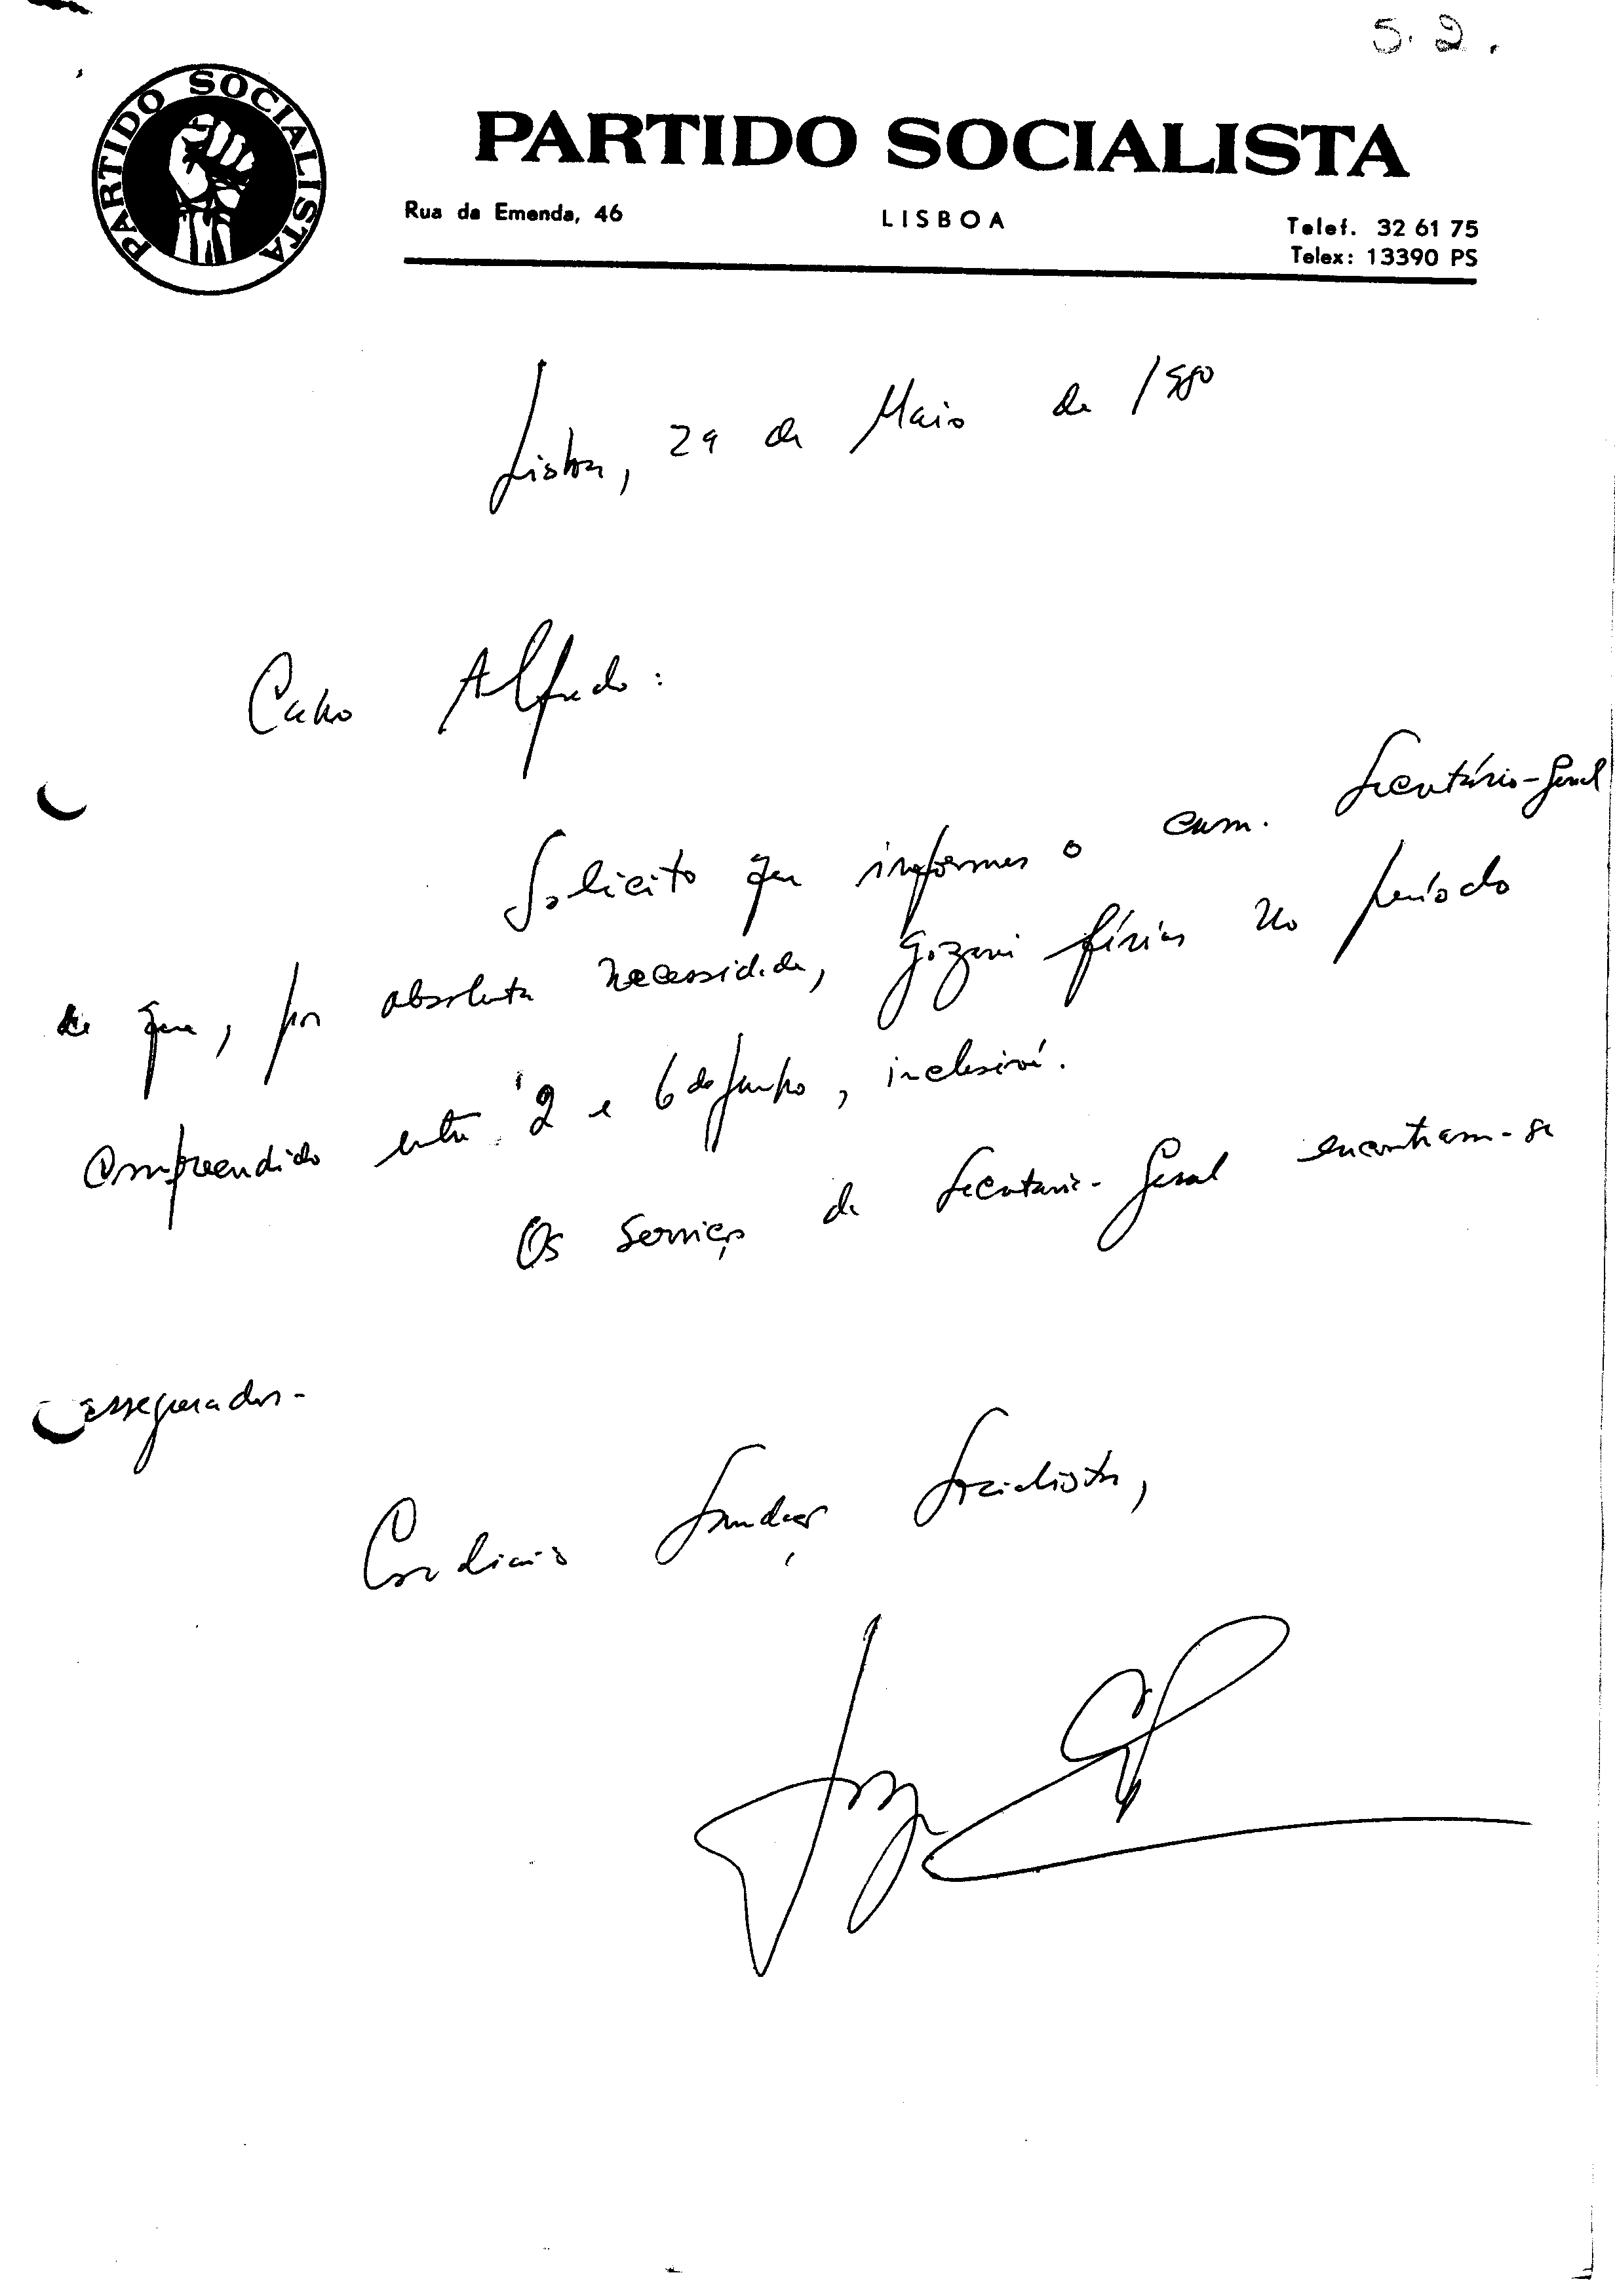 S. 2.
PARTIDO SOCIALISTA
PARTIDO SOCIALISTA
Rua da Emenda, 46 LISBOA Telef. 32 61 75
Telex: 13390 PS
Lisboa, 29 de Maio de 1980
Caro Alfredo:
Solicito que informes o cam. Secretário-Geral
de que, por absoluta necessidade, gozarei férias no período
compreendido entre 2 e 6 de Junho, inclusivé.
Os serviços da Secretaria-Geral encontram-se
assegurados.
Cordiais Saudações Socialistas,